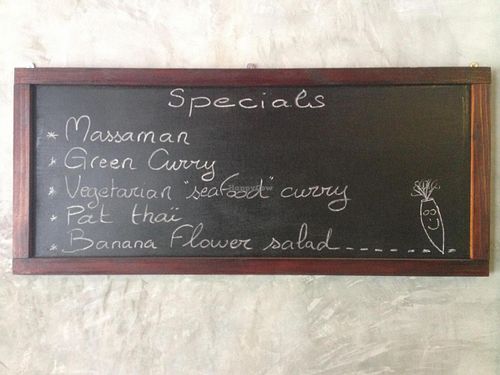 Specials
* Massaman
* Green Curry
* Vegetarian "seafood" curry
* Pat thaï
* Banana Flower salad
HappyCow